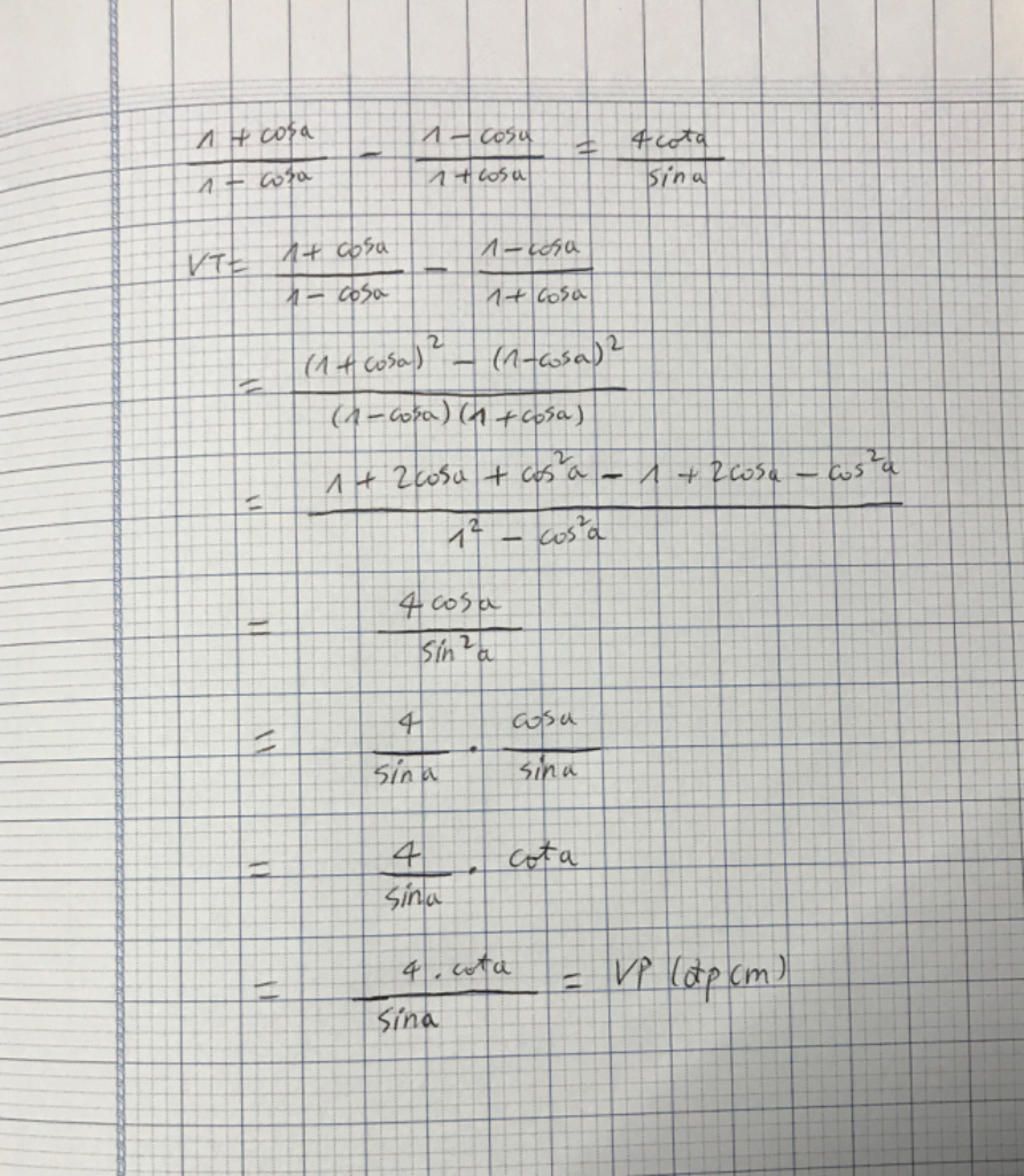 (1 + cosa)/(1 - cosa) - (1 - cosa)/(1 + cosa) = (4cota)/(sina)
VT= (1 + cosa)/(1 - cosa) - (1 - cosa)/(1 + cosa)
= ((1 + cosa)² - (1 - cosa)²)/((1 - cosa)(1 + cosa))
= (1 + 2cosa + cos²a - 1 + 2cosa - cos²a)/(1² - cos²a)
= (4cosa)/(sin²a)
= 4/(sina) . (cosa)/(sina)
= 4/(sina) . cota
= (4.cota)/(sina) = VP (đpcm)